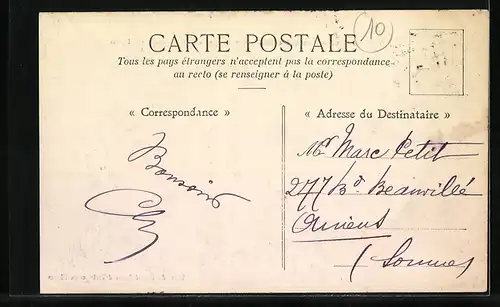 10
CARTE POSTALE
Tous les pays étrangers n'acceptent pas la correspondance
au recto (se renseigner à la poste)
« Correspondance »
« Adresse du Destinataire »
Mr Marc Petit
277 Bd Beauvillé
Amiens
(Somme)